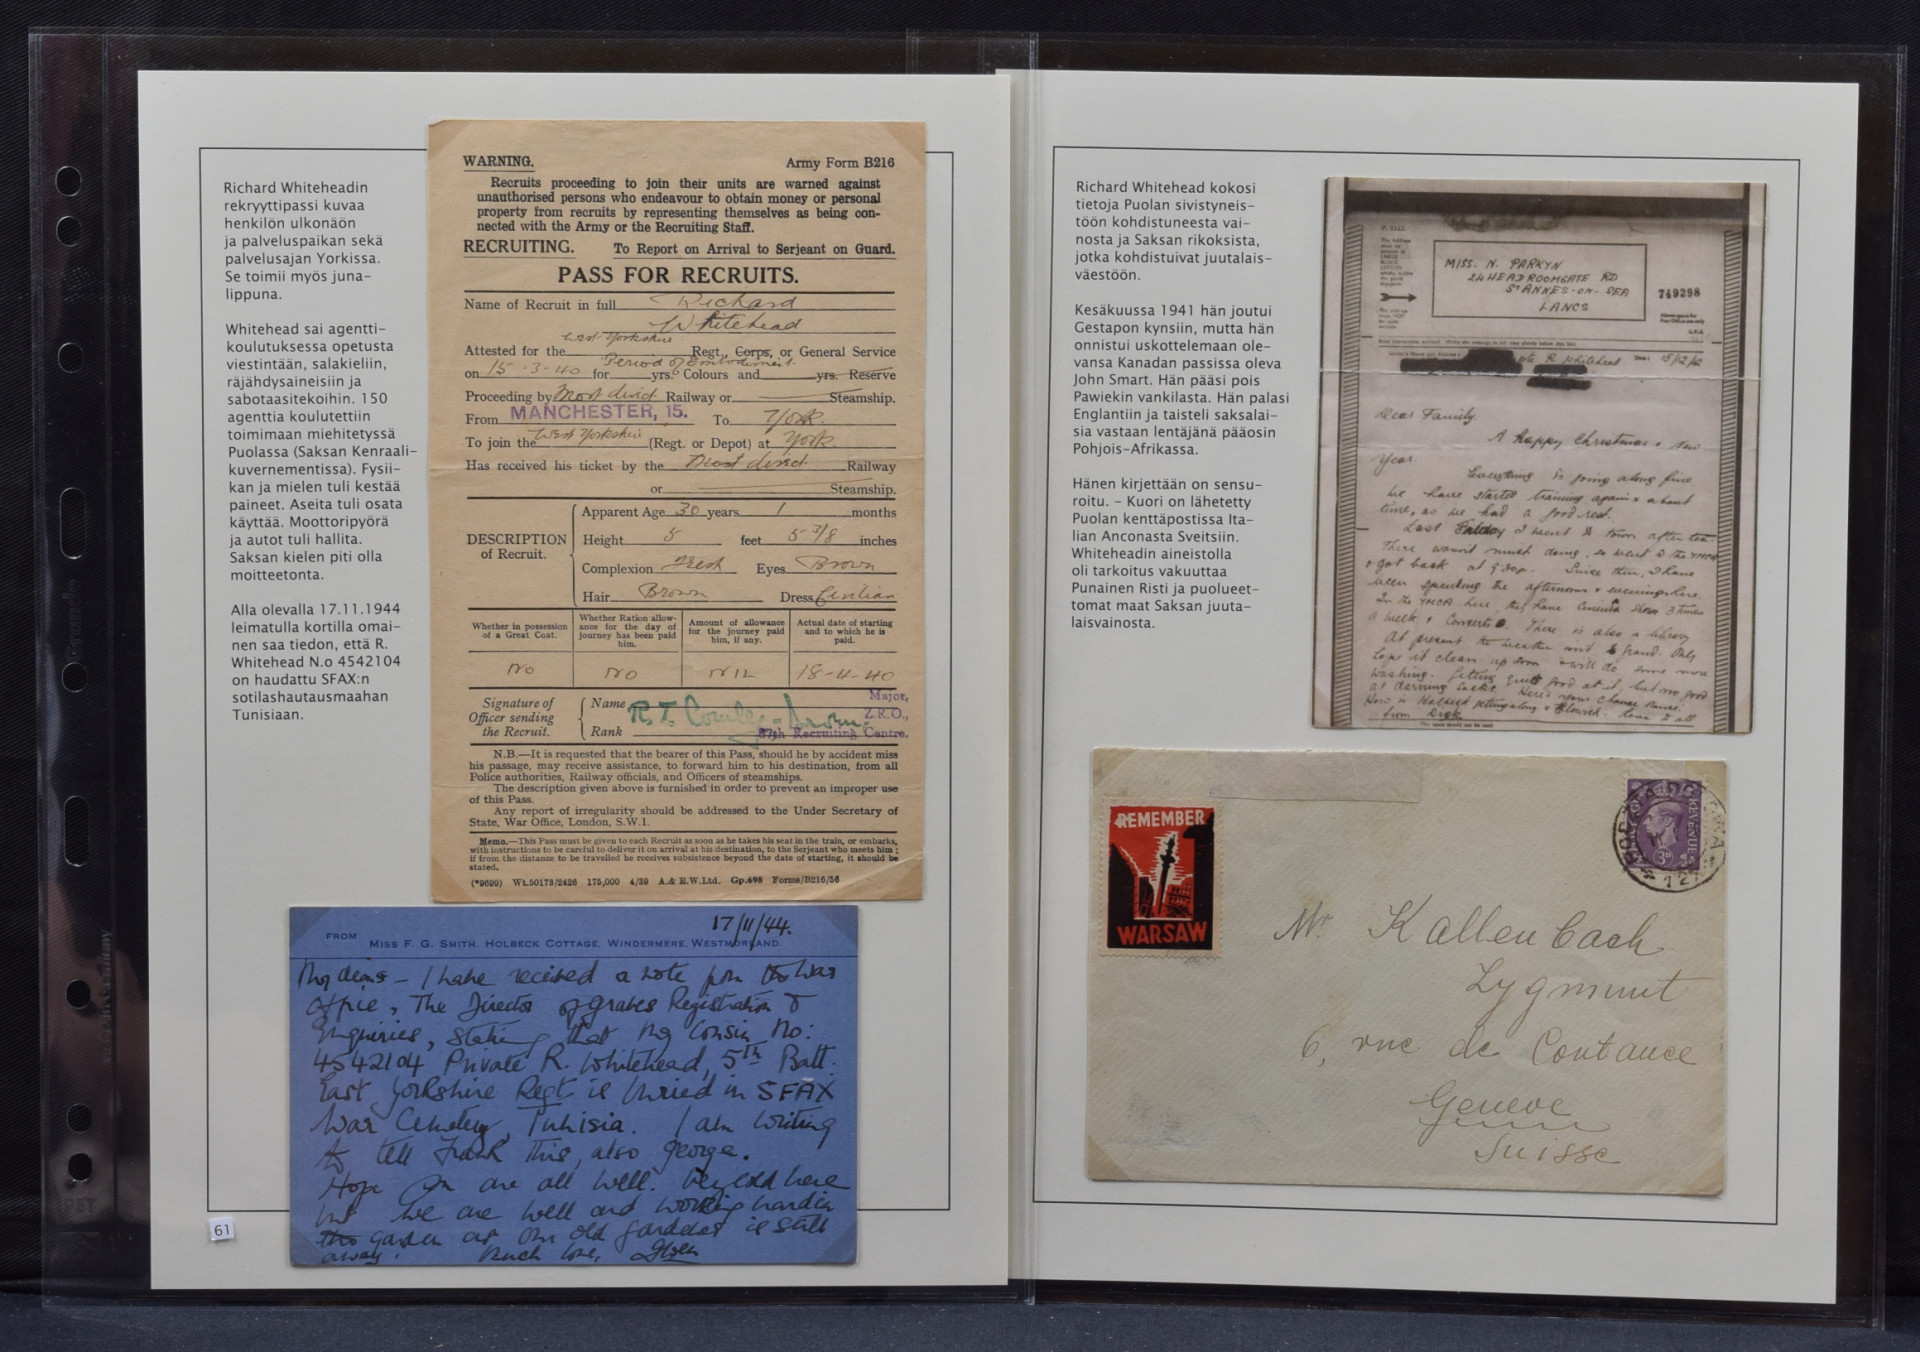 Richard Whiteheadin
rekryyttipassi kuvaa
henkilön ulkonäön
ja palveluspaikan sekä
palvelusajan Yorkissa.
Se toimii myös juna-
lippuna.
Whitehead sai agentti-
koulutuksessa opetusta
viestintään, salakieliin,
räjähdysaineisiin ja
sabotaasitekoihin. 150
agenttia koulutettiin
toimimaan miehitetyssä
Puolassa (Saksan Kenraali-
kuvernementissa). Fysii-
kan ja mielen tuli kestää
paineet. Aseita tuli osata
käyttää. Moottoripyörä
ja autot tuli hallita.
Saksan kielen piti olla
moitteetonta.
Alla olevalla 17.11.1944
leimatulla kortilla omai-
nen saa tiedon, että R.
Whitehead N.o 4542104
on haudattu SFAX:n
sotilashautausmaahan
Tunisiaan.
61
WARNING. Army Form B216
Recruits proceeding to join their units are warned against
unauthorised persons who endeavour to obtain money or personal
property from recruits by representing themselves as being con-
nected with the Army or the Recruiting Staff.
RECRUITING. To Report on Arrival to Serjeant on Guard.
PASS FOR RECRUITS.
Name of Recruit in full Richard
Whitehead
West Yorkshire
Attested for the Regt., Corps, or General Service
Period of Embodiment
on 15-3-40 for yrs. Colours and yrs. Reserve
Proceeding by Most direct Railway or Steamship.
From MANCHESTER, 15. To York
To join the West Yorkshire (Regt. or Depot) at York
Has received his ticket by the Most direct Railway
or Steamship.
DESCRIPTION
of Recruit.
Apparent Age 30 years 1 months
Height 5 feet 5 3/8 inches
Complexion Fresh Eyes Brown
Hair Brown Dress Civilian
Whether in possession
of a Great Coat.
Whether Ration allow-
ance for the day of
journey has been paid
him.
Amount of allowance
for the journey paid
him, if any.
Actual date of starting
and to which he is
paid.
NO NO NIL 18-4-40
Signature of
Officer sending
the Recruit.
Name R.T.
Rank
Major,
Z.R.O.,
Recruiting Centre.
N.B.—It is requested that the bearer of this Pass, should he by accident miss
his passage, may receive assistance, to forward him to his destination, from all
Police authorities, Railway officials, and Officers of steamships.
The description given above is furnished in order to prevent an improper use
of this Pass.
Any report of irregularity should be addressed to the Under Secretary of
State, War Office, London, S.W.1.
Memo.—This Pass must be given to each Recruit as soon as he takes his seat in the train, or embarks,
with instructions to be careful to deliver it on arrival at his destination, to the Serjeant who meets him;
if from the distance to be travelled he receives subsistence beyond the date of starting, it should be
stated.
(*9699) Wt.50173/2426 175,000 4/39 A.& E.W.Ltd. Gp.698 Forms/B216/56
17/11/44.
FROM MISS F. G. SMITH, HOLBECK COTTAGE, WINDERMERE, WESTMORLAND.
My dears – I have received a note from the War
Office, The Director of Graves Registration &
Enquiries, stating that my Cousin No:
4542104 Private R. Whitehead, 5th Batt.
East Yorkshire Regt is buried in SFAX
War Cemetery, Tunisia. I am writing
to tell Frank this, also George.
Hope you are all well. Very cold here
but we are well and working hard in
the garden as our old gardener is still
away. Much love,
Richard Whitehead kokosi
tietoja Puolan sivistyneis-
töön kohdistuneesta vai-
nosta ja Saksan rikoksista,
jotka kohdistuivat juutalais-
väestöön.
Kesäkuussa 1941 hän joutui
Gestapon kynsiin, mutta hän
onnistui uskottelemaan ole-
vansa Kanadan passissa oleva
John Smart. Hän pääsi pois
Pawiekin vankilasta. Hän palasi
Englantiin ja taisteli saksalai-
sia vastaan lentäjänä pääosin
Pohjois-Afrikassa.
Hänen kirjettään on sensu-
roitu. – Kuori on lähetetty
Puolan kenttäpostissa Ita-
lian Anconasta Sveitsiin.
Whiteheadin aineistolla
oli tarkoitus vakuuttaa
Punainen Risti ja puolueet-
tomat maat Saksan juuta-
laisvainosta.
MISS. N. PARKYN
24 HEADROOMGATE RD
ST ANNES-ON-SEA
LANCS
749298
R Whitehead 15/12/42
Dear Family.
A happy Christmas & New
Year.
Everything is going along fine.
We have started training again & about
time, as we had a good rest.
Last Friday I went to town after tea.
There wasn't much doing, so went to the YMCA
& got back at 9:30p. Since then, I have
been spending the afternoons & evenings here.
In the YMCA here, they have Cinema Show 3 times
a week & Concerts. There is also a library
At present the weather isn't so grand. Only
hope it clears up soon & will do some more
washing. Getting quite good at it, but no good
at darning Socks.
from Dick
REMEMBER
WARSAW
REVENUE
3D
Mr Kallenbach
Zygmunt
6, rue de Coutance
Geneve
Suisse